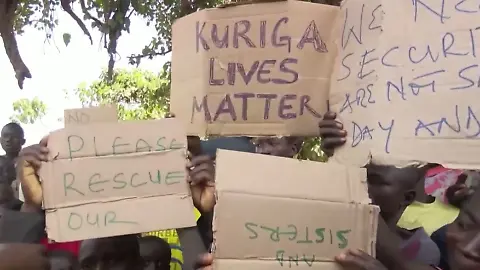 KURIGA
LIVES
MATTER
WE NEE
SECURI
ARE NOT SA
DAY AND
NO
PLEASE
RESCUE
OUR
SISTERS
AND